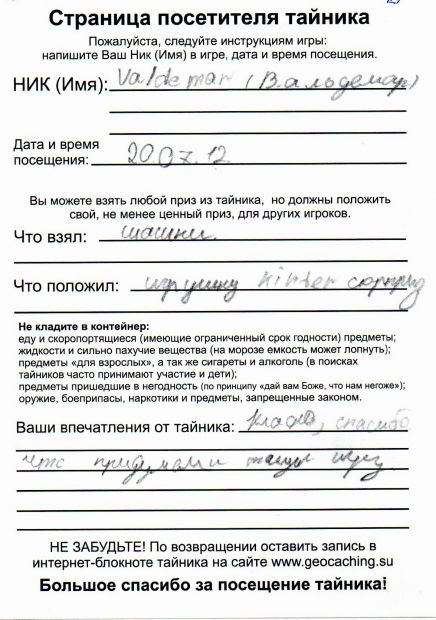 Страница посетителя тайника
Пожалуйста, следуйте инструкциям игры:
напишите Ваш Ник (Имя) в игре, дата и время посещения.
НИК (Имя): Valdemar (Вальдемар)
Дата и время
посещения: 20.07.12
Вы можете взять любой приз из тайника, но должны положить
свой, не менее ценный приз, для других игроков.
Что взял: шашки.
Что положил: игрушку Kinder сюрприз
Не кладите в контейнер:
еду и скоропортящиеся (имеющие ограниченный срок годности) предметы;
жидкости и сильно пахучие вещества (на морозе емкость может лопнуть);
предметы «для взрослых», а так же сигареты и алкоголь (в поисках
тайников часто принимают участие и дети);
предметы пришедшие в негодность (по принципу «дай вам Боже, что нам негоже»);
оружие, боеприпасы, наркотики и предметы, запрещенные законом.
Ваши впечатления от тайника: Класно, спасибо
что придумали такую игру
НЕ ЗАБУДЬТЕ! По возвращении оставить запись в
интернет-блокноте тайника на сайте www.geocaching.su
Большое спасибо за посещение тайника!